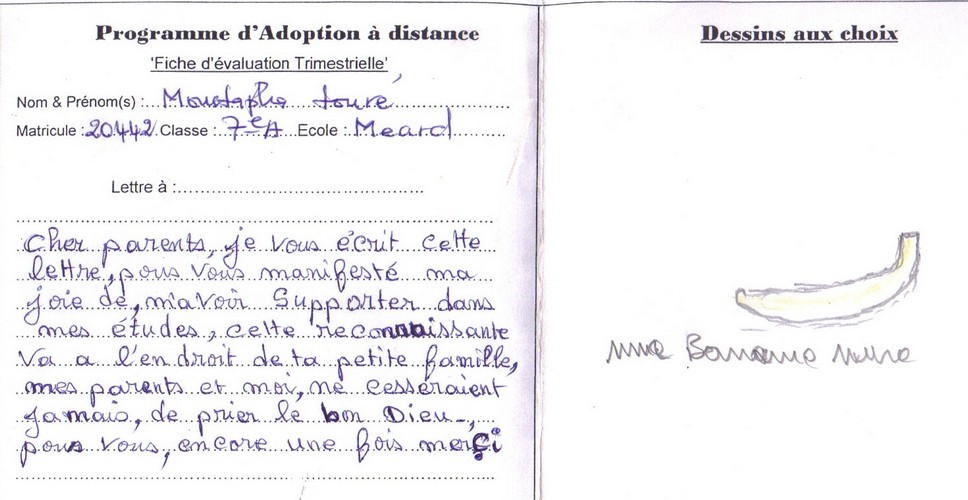 Programme d'Adoption à distance
'Fiche d'évaluation Trimestrielle'
Nom & Prénom(s) :...Moustapha touré
Matricule :20442.Classe :..7eA...Ecole :.Meard
Lettre à :
Cher parents, je vous écrit cette
lettre, pous vous manifesté ma
joie de, m'avoir Supporter dans
mes études, cette reconnaissante
va a l'en droit de ta petite famille,
mes parents et moi, ne cesséraient
Jamais, de prier le bon Dieu-,
pous vous, encore une fois merçi
Dessins aux choix
une Banane mure